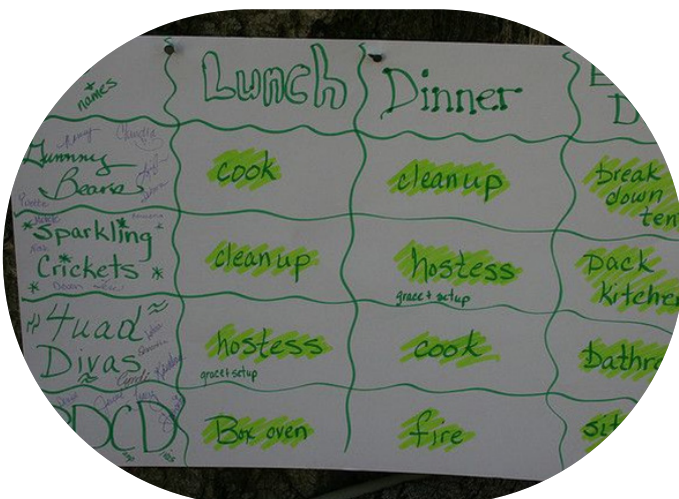 names
Lunch
Dinner
E
D
Gummy
Bears
cook
cleanup
break
down
ten
Sparkling
Crickets
cleanup
hostess
grace + setup
Pack
kitche
4uad
Divas
Cyndi
hostess
grace + setup
cook
bathr
DCD
Box oven
fire
sit